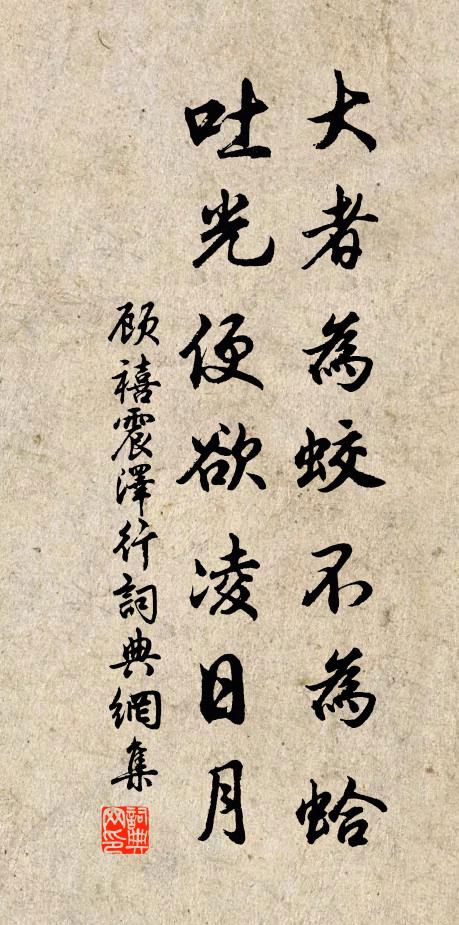 大者為蛟不為蛤
吐光便欲凌日月
顾禧震澤行詞典網集
詞典网印